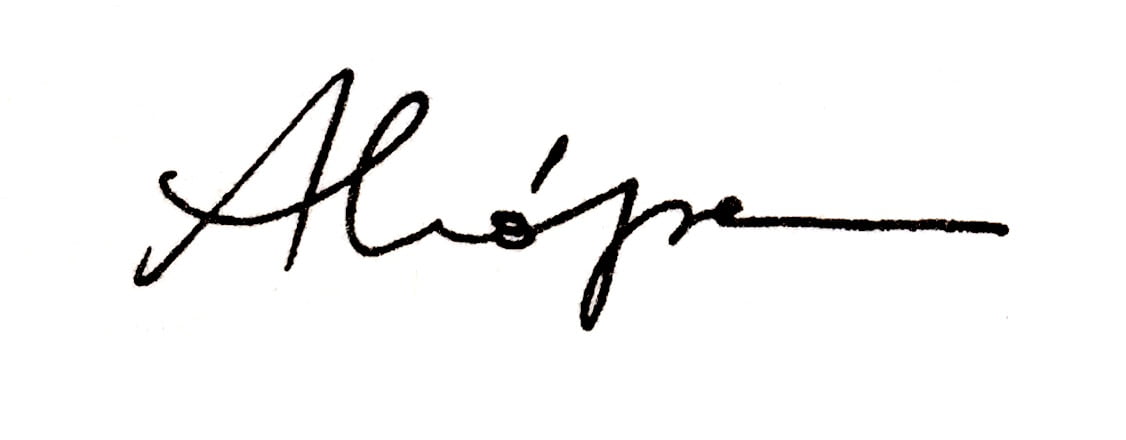 ALópez